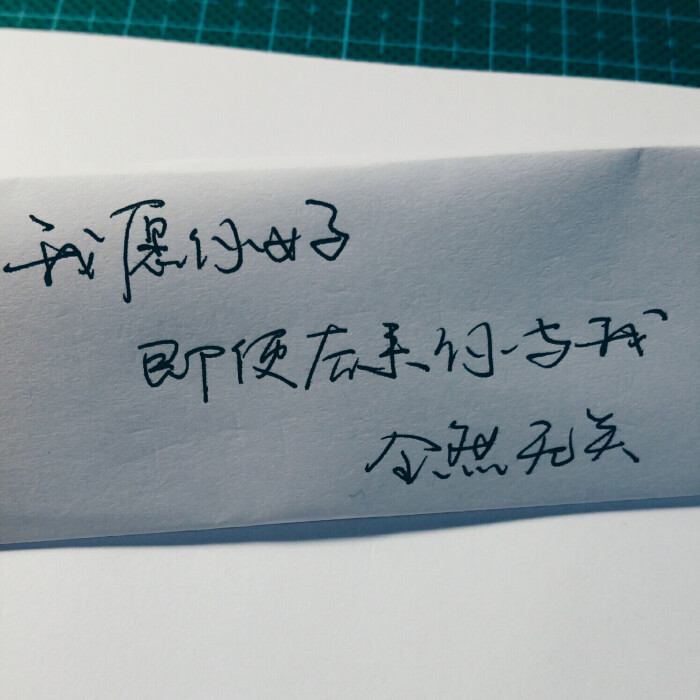 我愿你好
即便后来你与我
全然无关